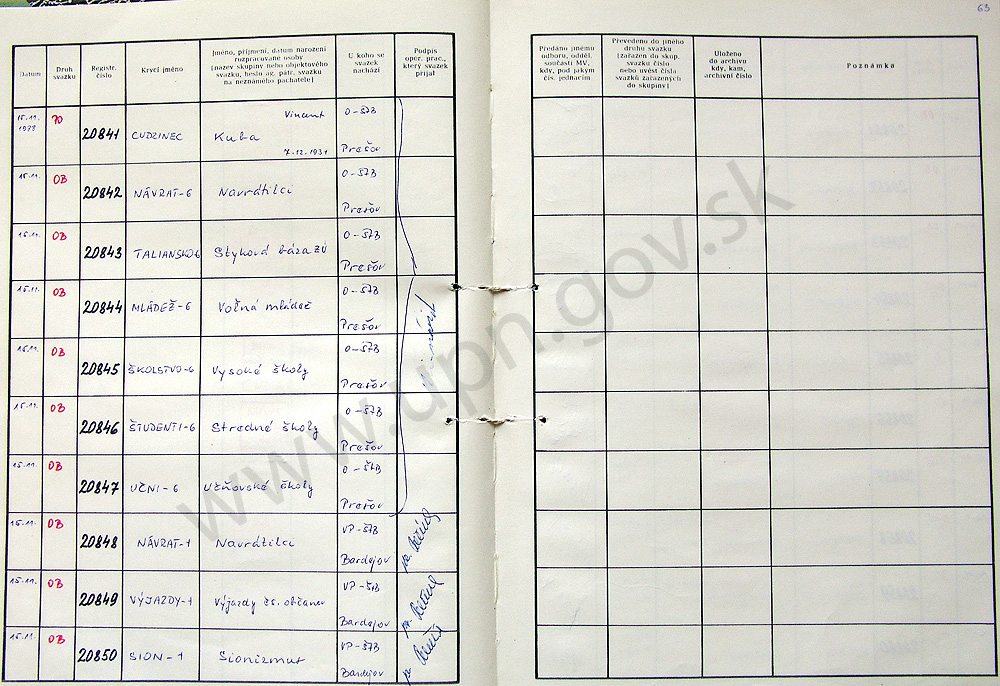 63
Datum
Druh
svazku
Registr.
číslo
Krycí jméno
Jméno, příjmení, datum narození
rozpracované osoby
(název skupiny nebo objektového
svazku, heslo ag. pátr. svazku
na neznámého pachatele)
U koho se
svazek
nachází
Podpis
oper. prac.,
který svazek
přijal
Předáno jinému
odboru, odděl.
součásti MV,
kdy, pod jakým
čís. jednacím
Převedeno do jiného
druhu svazku
(zařazen do skup.
svazku číslo
nebo uvést čísla
svazků zařazených
do skupiny)
Uloženo
do archivu
kdy, kam,
archivní číslo
Poznámka
15.11.
1988
PO
20841
CUDZINEC
Vincent
Kuba
7.12.1931
O-ŠTB
Prešov
15.11.
OB
20842
NÁVRAT-6
Navrátilci
O-ŠTB
Prešov
15.11.
OB
20843
TALIANSKO-6
Styková báza ZÚ
O-ŠTB
Prešov
15.11.
OB
20844
MLÁDEŽ-6
Voľná mládež
O-ŠTB
Prešov
15.11.
OB
20845
ŠKOLSTVO-6
Vysoké školy
O-ŠTB
Prešov
15.11.
OB
20846
ŠTUDENTI-6
Stredné školy
O-ŠTB
Prešov
15.11.
OB
20847
UČNI-6
Učňovské školy
O-ŠTB
Prešov
15.11.
OB
20848
NÁVRAT-1
Navrátilci
VP-ŠTB
Bardejov
15.11.
OB
20849
VÝJAZDY-1
Výjazdy čs. občanov
VP-ŠTB
Bardejov
15.11.
OB
20850
SION-1
Sionizmus
VP-ŠTB
Bardejov
www.upn.gov.sk